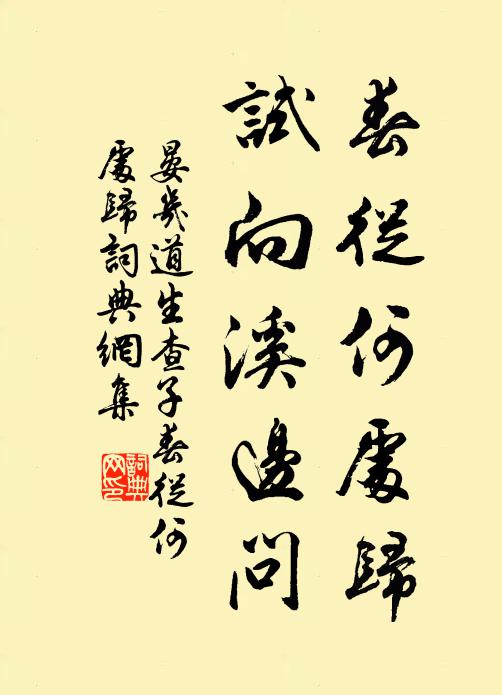 春從何處歸
試向溪邊問
晏幾道生查子春從何
處歸詞典網集
詞典
网印